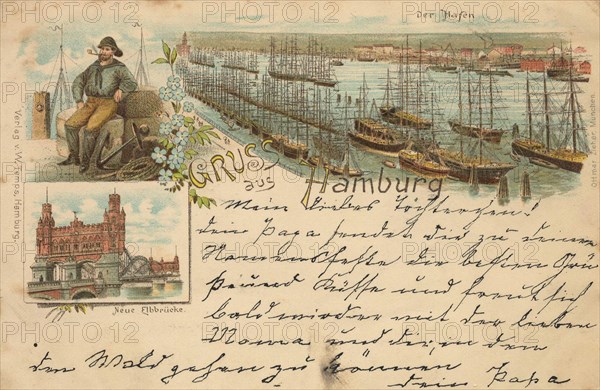 Der Hafen
Gruss
aus
Hamburg
Neue Elbbrücke.
Verlag v. W. Zempa, Hamburg.
Mein liebes Töchterchen!
dein Papa sendet dir zu deinem
Namensfeste die besten Grü
und Küsse und freut sich
bald wieder mit der lieben
Mama und dir in den
den Wald gehen zu können
dein Papa
PHOTO 12